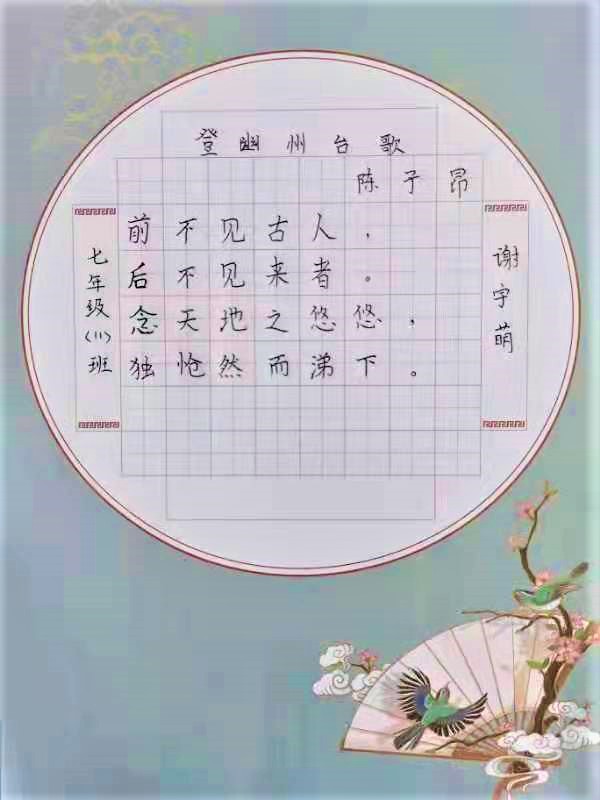 登幽州台歌
陈子昂
前不见古人，
后不见来者。
念天地之悠悠，
独怆然而涕下。
七年级(11)班
谢宇萌